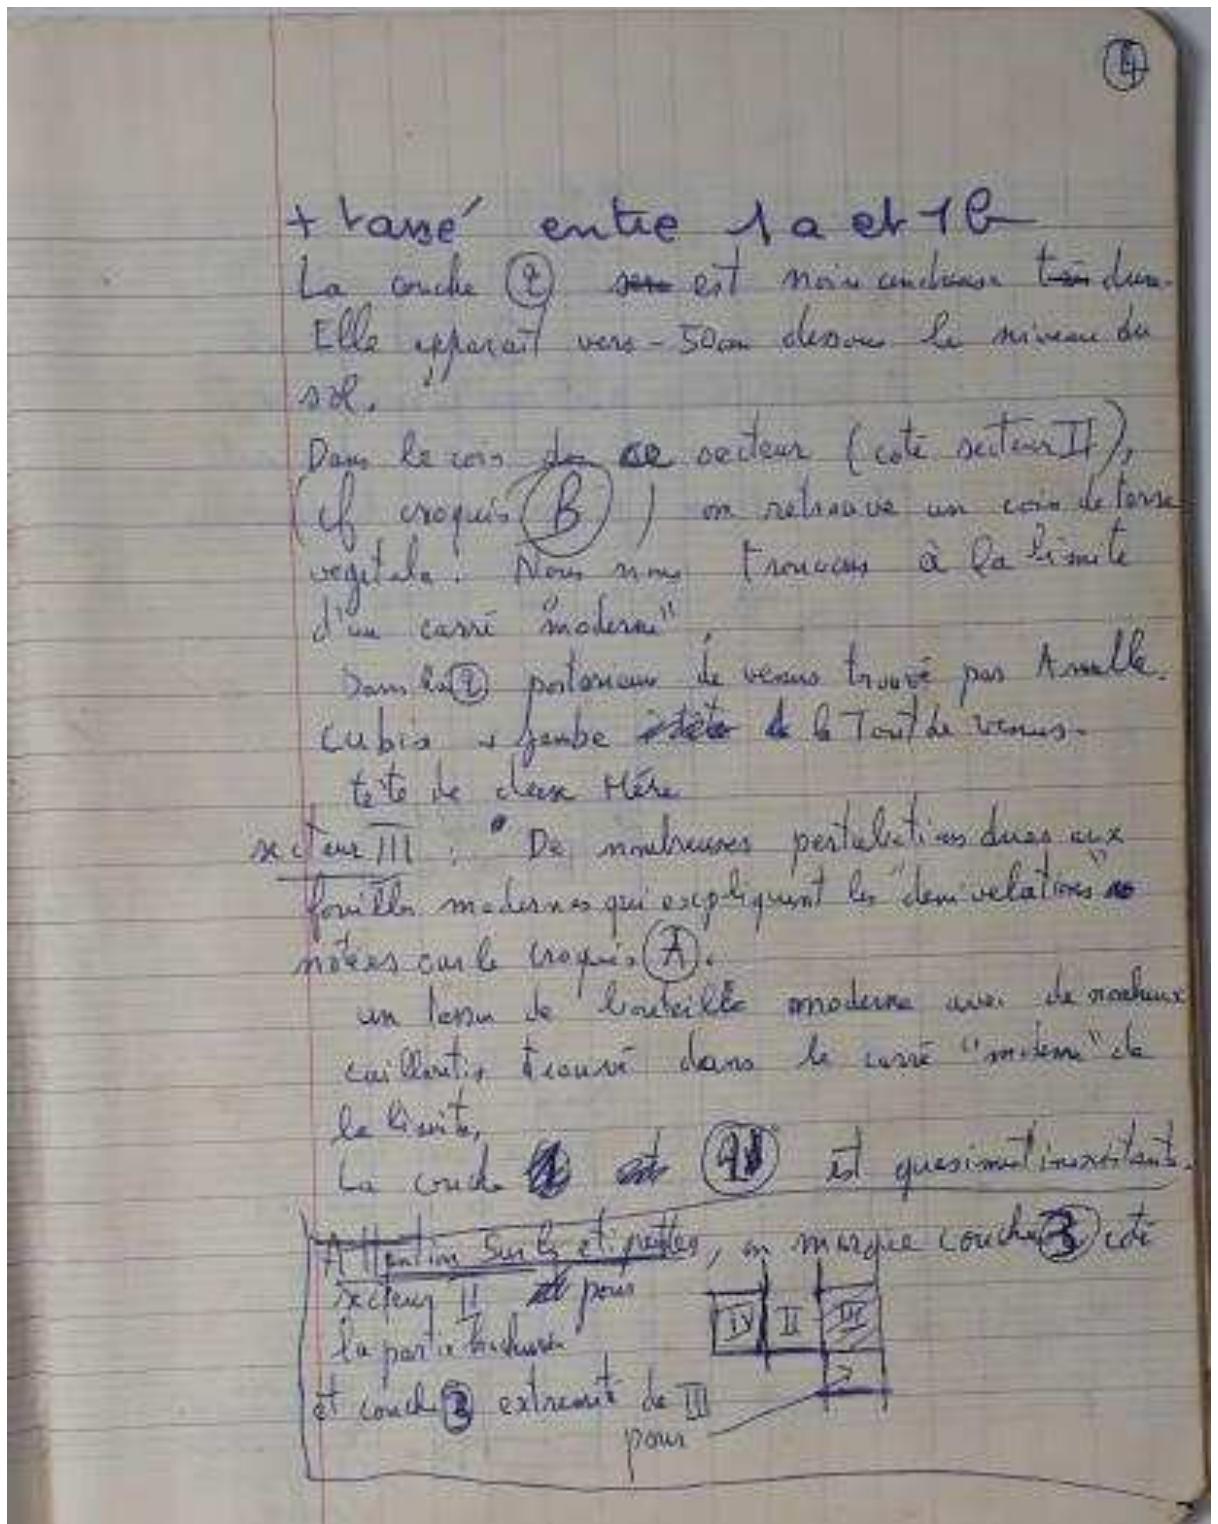 4
+ tassé entre 1a et 1b
La couche 2 est noire cendreuse très dure.
Elle apparait vers - 50cm dessous le niveau du
sol.
Dans le coin de ce secteur (coté secteur II),
(cf croquis B) on retrouve un coin de terre
végétale. Nous nous trouvons à la limite
d'un carré "moderne"
Dans la 2 posterieur de venus trouvé par
Cubis jambe de la venus.
tête de deesse Mère
secteur III : De nombreuses pertubations dues aux
fouilles modernes qui expliquent les "denivelations"
notées sur le croquis A.
un tesson de bouteille moderne avec de nombreux
cailloutis trouvé dans le carré "moderne" de
la limite,
La couche est quasiment inexistante.
Attention Sur les etiquettes, on marque couche 3 coté
secteur II pour
la partie hachurée
IV II III
et couche 3 extremité de III
pour